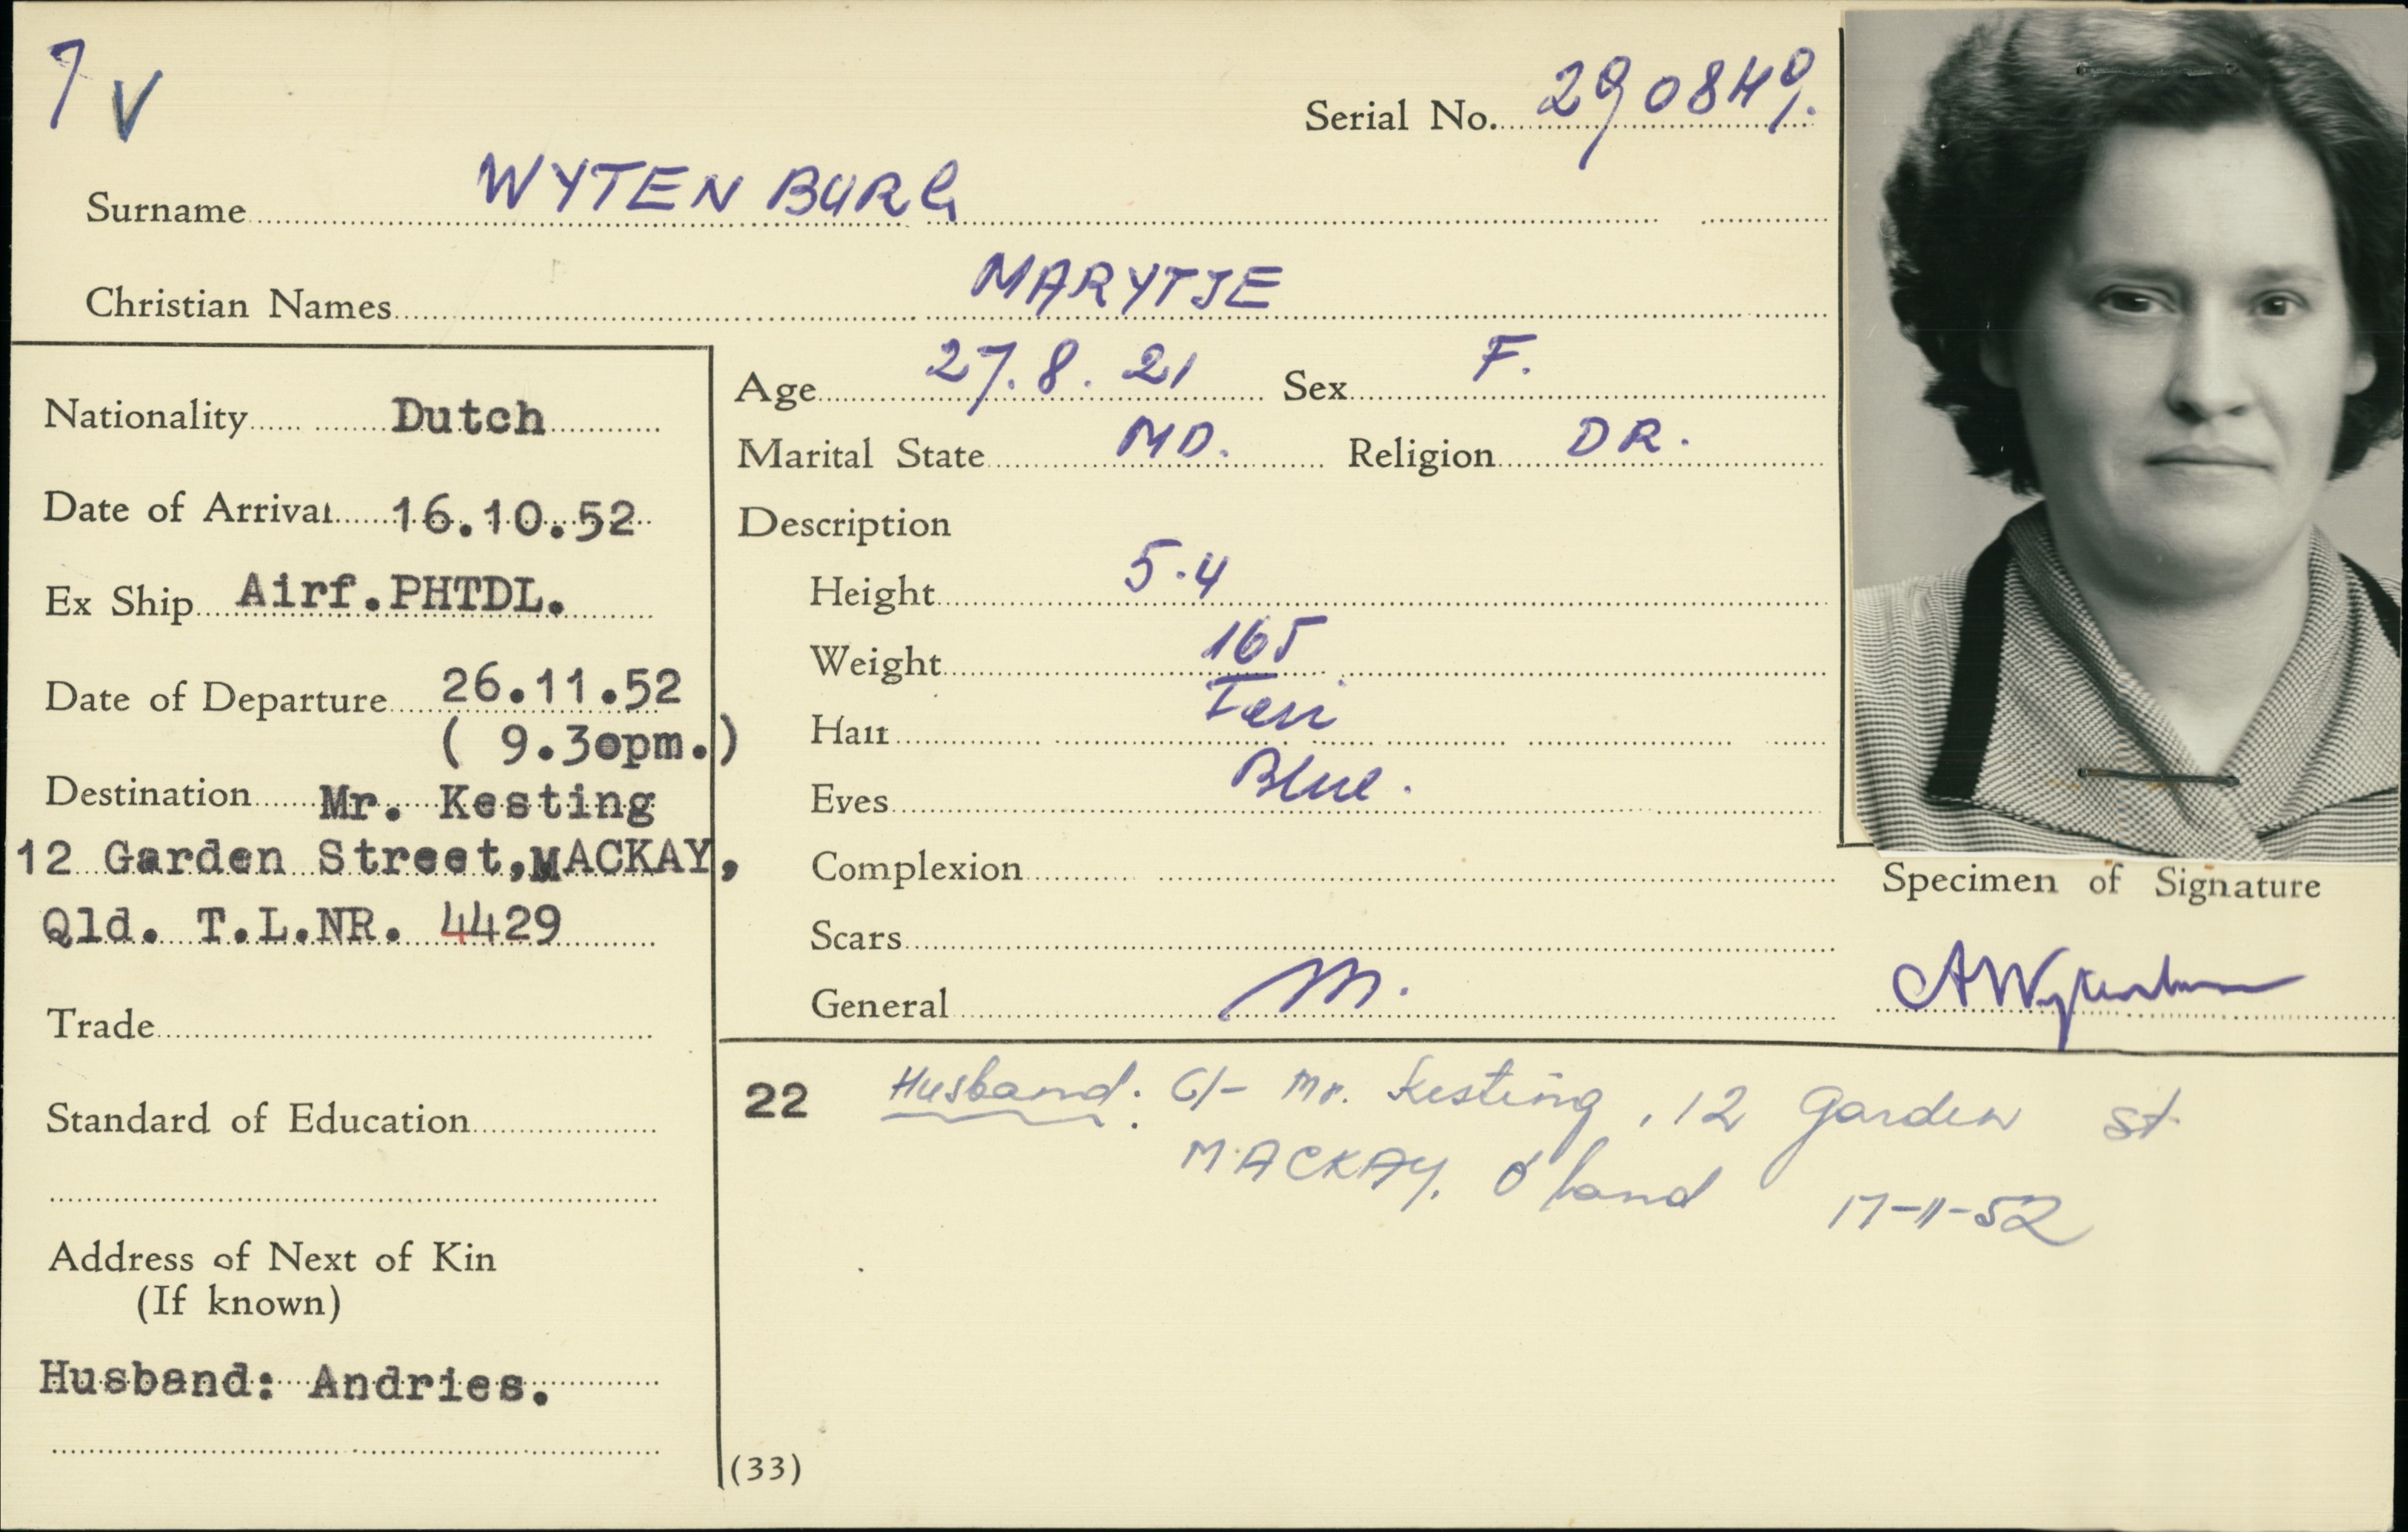 7 V
Serial No. 290849.
Surname WYTENBURG
Christian Names MARYTJE
Nationality Dutch
Date of Arrival 16.10.52
Ex Ship Airf.PHTDL.
Date of Departure 26.11.52
( 9.30pm.)
Destination Mr. Kesting
12 Garden Street,MACKAY,
Qld. T.L.NR. 4429
Trade
Standard of Education
Address of Next of Kin
(If known)
Husband: Andries.
Age 27.8.21 Sex F.
Marital State MD. Religion DR.
Description
Height 5.4
Weight 165
Hair Fair
Eyes Blue.
Complexion
Scars
General M.
Specimen of Signature
22 Husband: C/- Mr. Kesting, 12 Garden St
MACKAY, Q'land 17-11-52
(33)